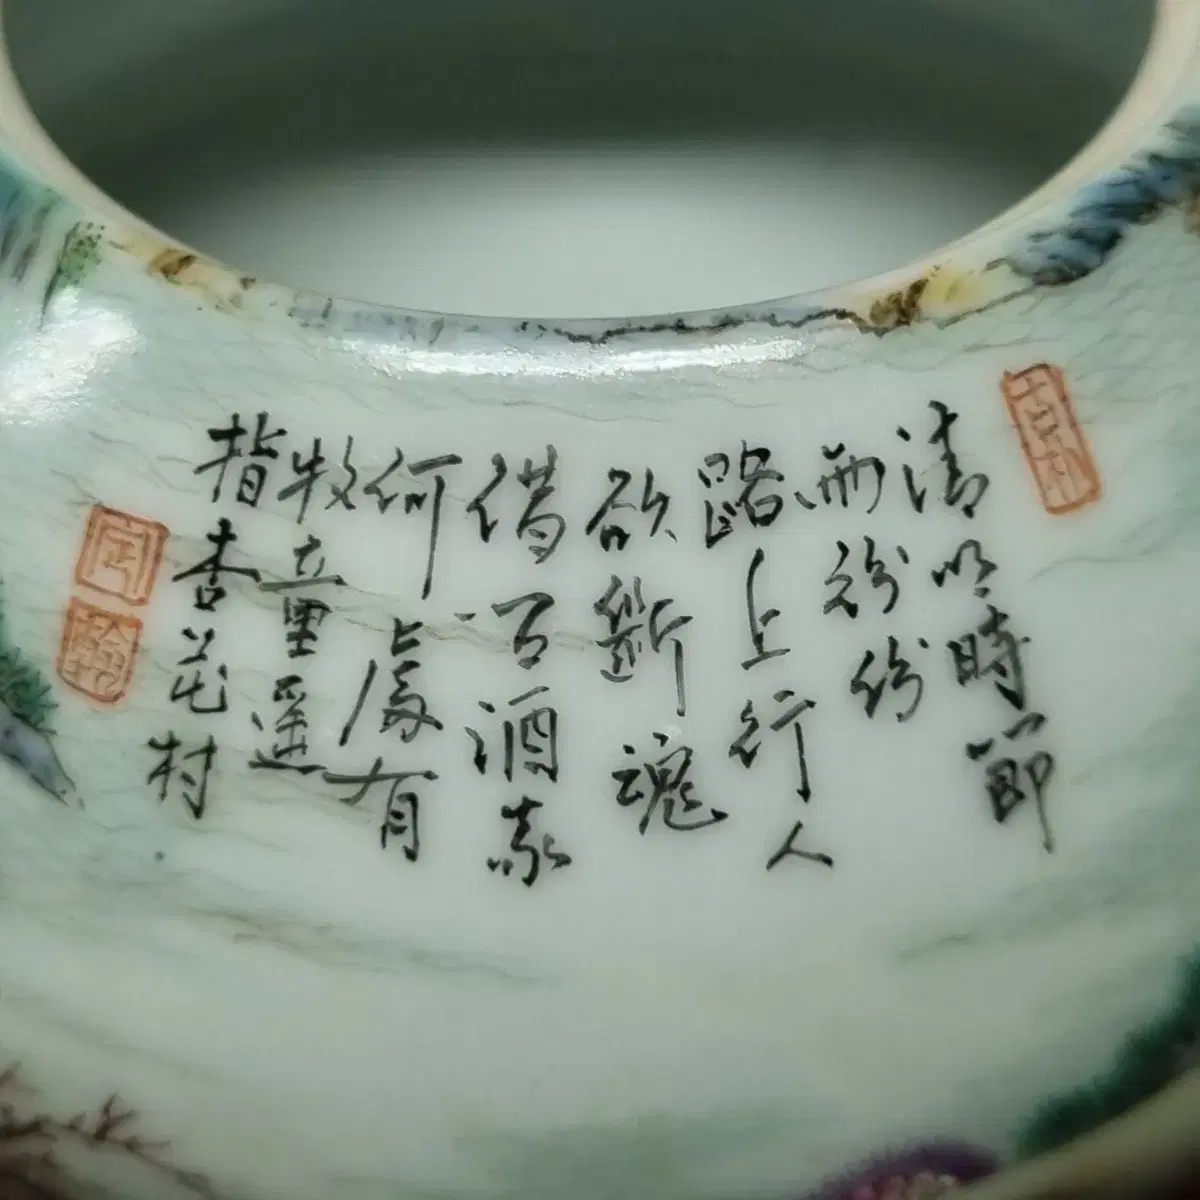 清明時節
雨紛紛
路上行人
欲斷魂
借问酒家
何處有
牧童遥
指杏花村